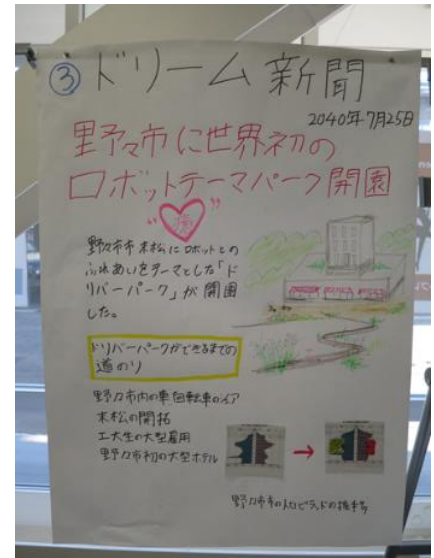 ③ ドリーム新聞
2040年7月25日
野々市に世界初の
ロボットテーマパーク開園
"癒"
野々市市末松にロボットとの
ふれあいをテーマとした「ド
リバーパーク」が開園
した。
ドリバーパークができるまでの
道のり
野々市内の車、自転車のシェア
末松の開拓
工大生の大型雇用
野々市初の大型ホテル
野々市市の